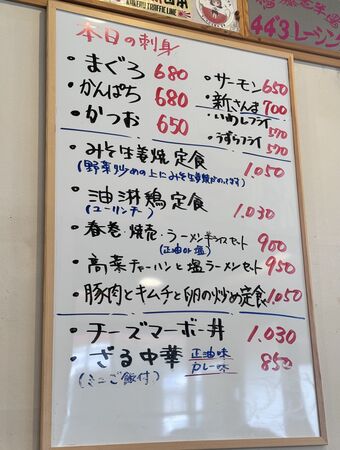 本日の刺身
・まぐろ 680
・かんぱち 680
・かつお 650
・サーモン 650
・新さんま 700
・いわしフライ 570
・うずらフライ 570
・みそ生姜焼定食 1,050
(野菜炒めの上にみそ生姜焼がのってます)
・油淋鶏定食 1,030
(ユーリンチー)
・春巻・焼売・ラーメン半ライスセット 900
(正油or塩)
・高菜チャーハンと塩ラーメンセット 950
・豚肉とキムチと卵の炒め定食 1,050
・チーズマーボー丼 1,030
・ざる中華 正油味 850
カレー味
(ミニご飯付)